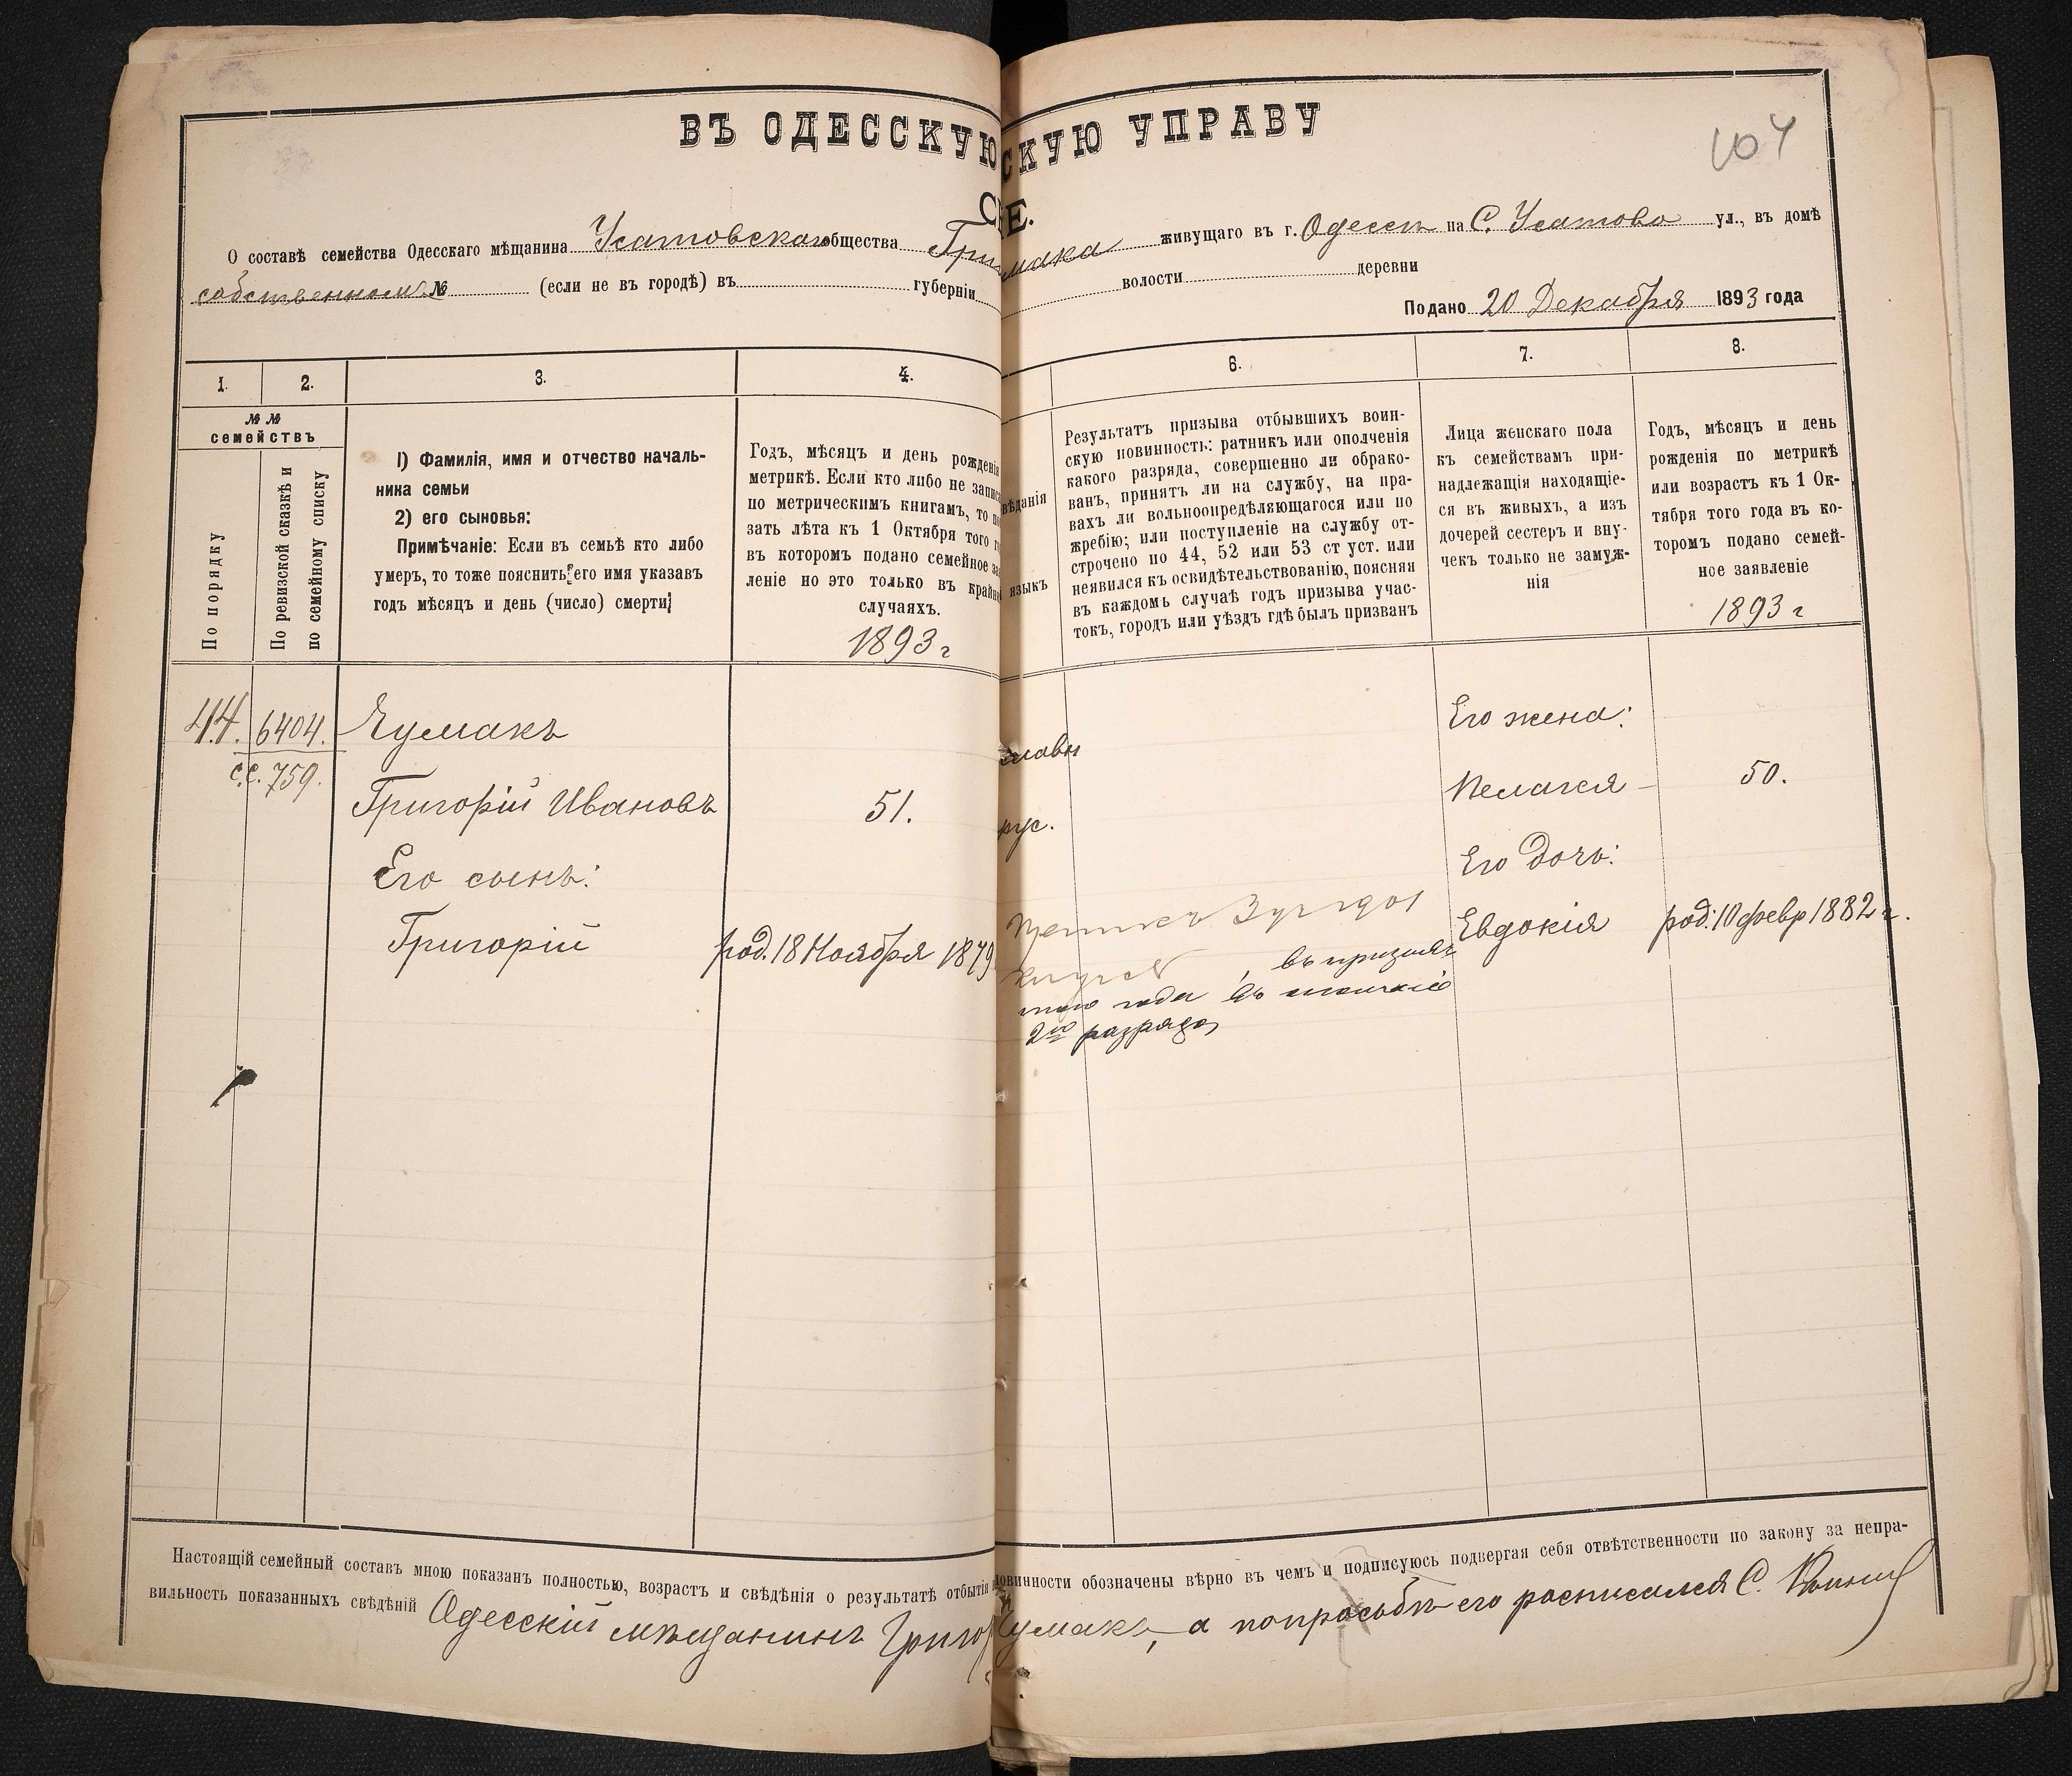 ВЪ ОДЕССКУЮ
СКУЮ УПРАВУ
104
Е.
О составѣ семейства Одесскаго мѣщанина Усатовскаго общества Гри
мака живущаго въ г. Одессѣ на С. Усатово ул., въ домѣ
собственномъ № (если не въ городѣ) въ губерніи
волости деревни
Подано 20 Декабря 1893 года
1. 2. 3. 4.
6. 7. 8.
№ №
семействъ
По порядку
По ревизской сказкѣ и
по семейному списку
1) Фамилія, имя и отчество началь-
ника семьи
2) его сыновья:
Примѣчаніе: Если въ семьѣ кто либо
умеръ, то тоже пояснить, его имя указавъ
годъ мѣсяцъ и день (число) смерти;
Годъ, мѣсяцъ и день рожденія
метрикѣ. Если кто либо не записа
по метрическимъ книгамъ, то по
зать лѣта къ 1 Октября того г
въ которомъ подано семейное за
леніе но это только въ крайн
случаяхъ.
1893 г
вѣданія
языкъ
Результатъ призыва отбывшихъ воин-
скую повинность: ратникъ или ополченія
какого разряда, совершенно ли обрако-
ванъ, принятъ ли на службу, на пра-
вахъ ли вольноопредѣляющагося или по
жребію; или поступленіе на службу от-
строчено по 44, 52 или 53 ст уст. или
неявился къ освидѣтельствованію, поясняя
въ каждомъ случаѣ годъ призыва учас-
токъ, городъ или уѣздъ гдѣ былъ призванъ
Лица женскаго пола
къ семействамъ при-
надлежащія находящіе-
ся въ живыхъ, а изъ
дочерей сестеръ и вну-
чекъ только не замуж-
нія
Годъ, мѣсяцъ и день
рожденія по метрикѣ
или возрастъ къ 1 Ок-
тября того года въ ко-
торомъ подано семей-
ное заявленіе
1893 г
44. 6404. Чумакъ
с.с. 759.
Григорій Ивановъ 51.
Его сынъ:
Григорій род. 18 Ноября 1879
славн
рус.
въ призывѣ
года въ
2го разряда
Его жена:
Пелагея 50.
Его дочь:
Евдокія род: 10 февр 1882 г.
Настоящій семейный составъ мною показанъ полностью, возрастъ и свѣдѣнія о результатѣ отбытія
повинности обозначены вѣрно въ чемъ и подписуюсь подвергая себя отвѣтственности по закону за непра-
вильность показанныхъ свѣдѣній Одесскій мѣщанинъ Григо
Чумакъ, а попросьбѣ его росписался С.